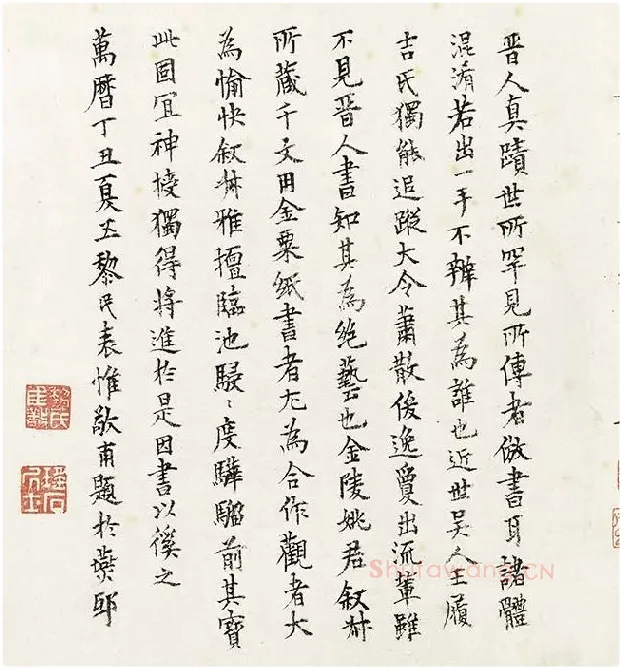 晋人真蹟世所罕見所傳者倣書耳諸體
混淆若出一手不辨其為誰也近世吴人王履
吉氏獨能追蹤大令蕭散俊逸敻出流輩雖
不見晋人書知其為絶藝也金陵姚君叙材
所藏千文用金粟紙書者尤為合作觀者大
為愉快叙材雅擅臨池駸〻度驊騮前其寳
此固宜神授獨得将進於是因書以徯之
萬曆丁丑夏五黎民表惟敬甫題於燕邸
黎氏惟敬
瑤石
ShufaWang.CN